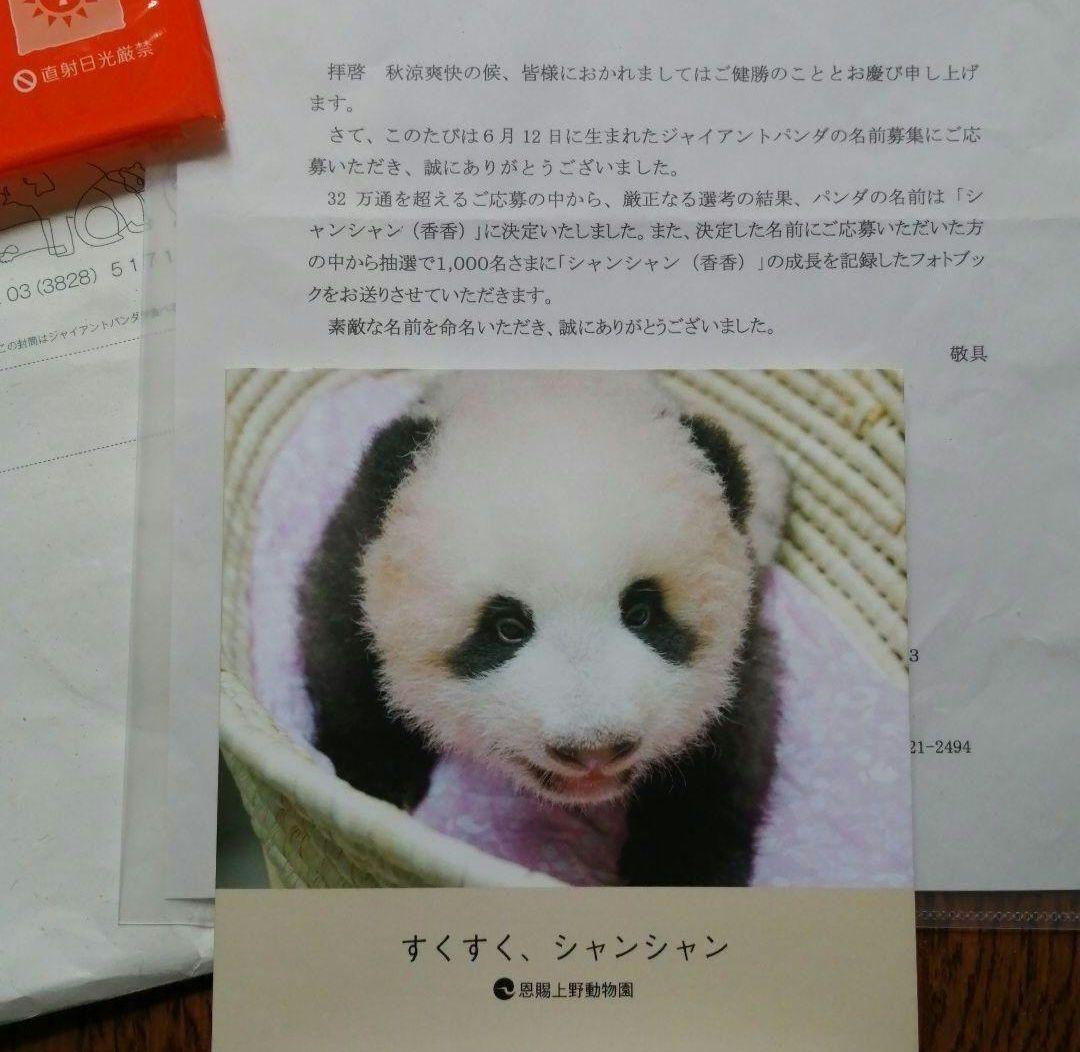 直射日光厳禁
拝啓　秋涼爽快の候、皆様におかれましてはご健勝のこととお慶び申し上げ
ます。
さて、このたびは６月 12 日に生まれたジャイアントパンダの名前募集にご応
募いただき、誠にありがとうございました。
32 万通を超えるご応募の中から、厳正なる選考の結果、パンダの名前は「シ
ャンシャン（香香）」に決定いたしました。また、決定した名前にご応募いただいた方
の中から抽選で1,000名さまに「シャンシャン（香香）」の成長を記録したフォトブッ
クをお送りさせていただきます。
素敵な名前を命名いただき、誠にありがとうございました。
敬具
03 (3828) 5171
この封筒はジャイアントパンダ
3
21-2494
すくすく、シャンシャン
恩賜上野動物園